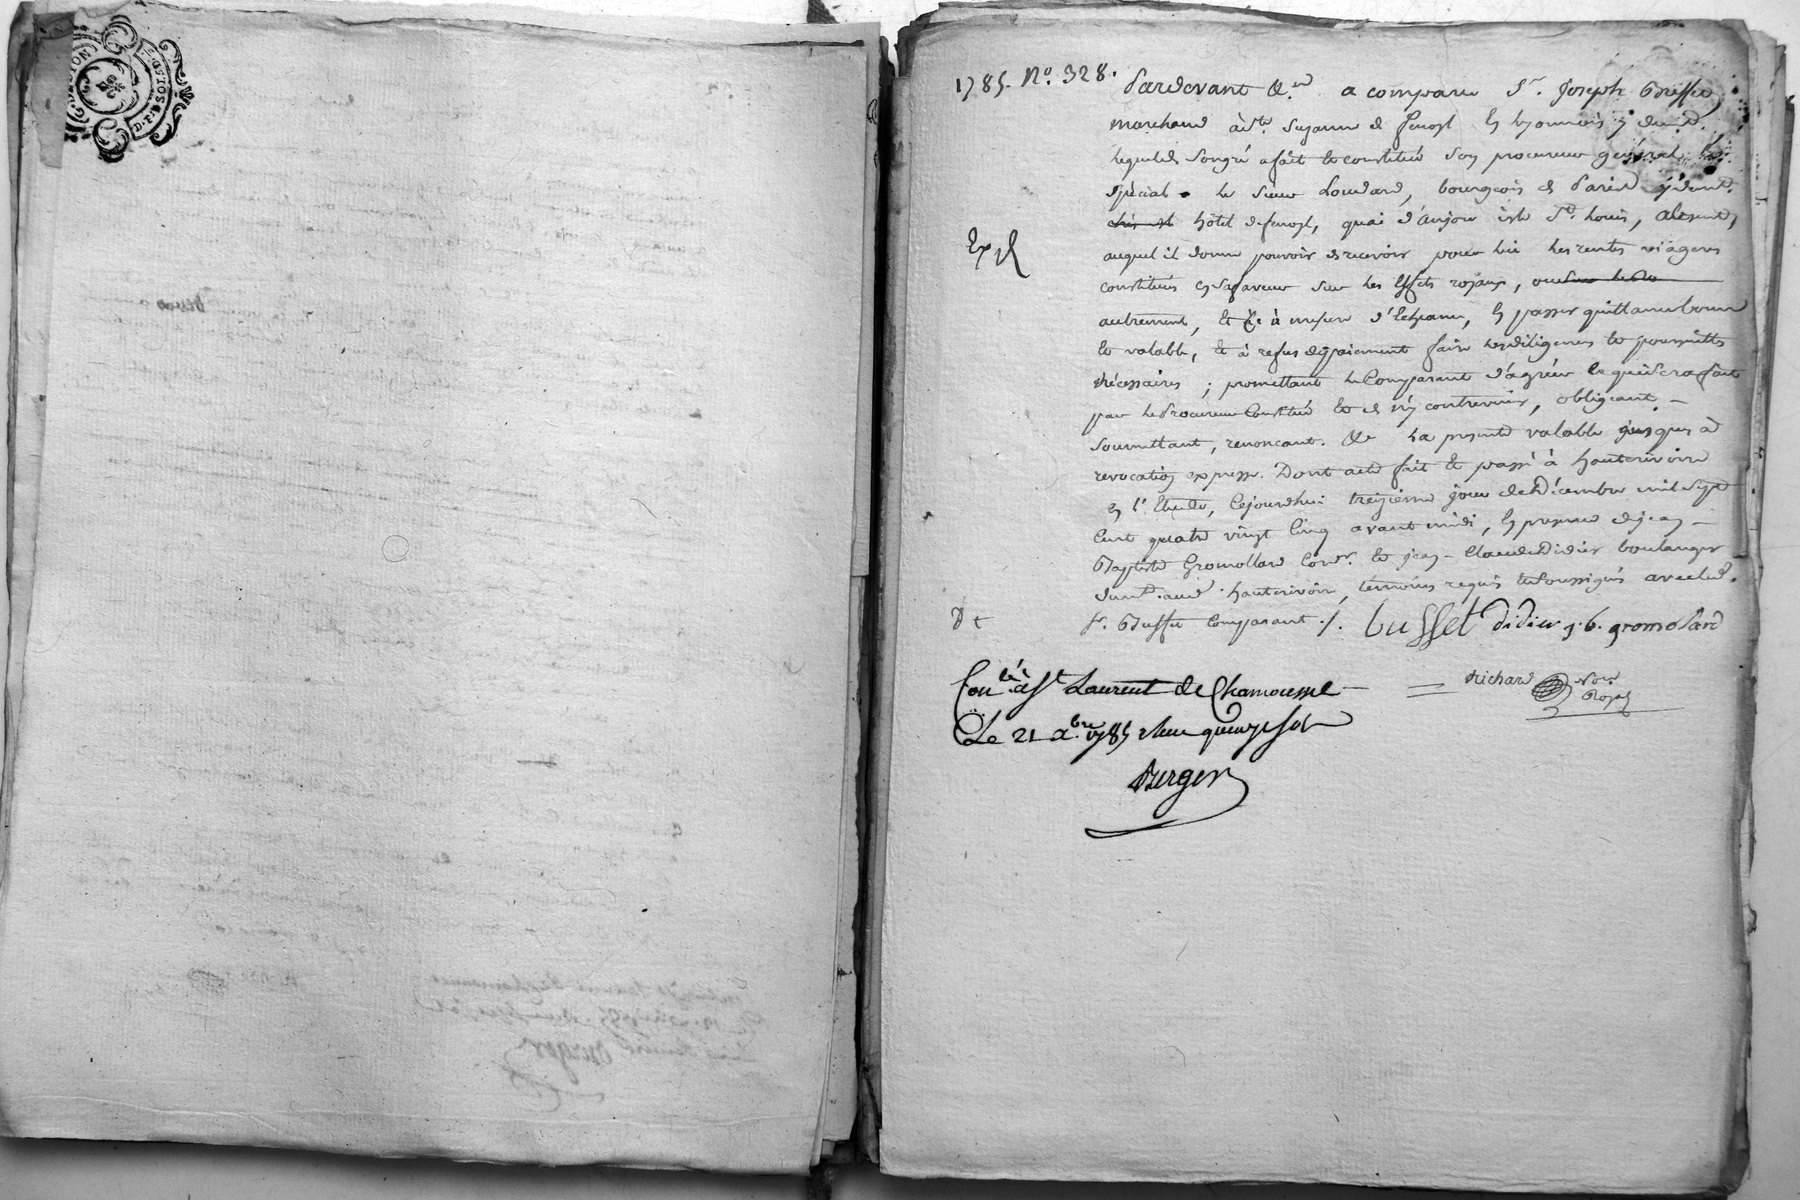 1785. No. 328.
Pardevant &.re a comparu Sr. Joseph Bussset
marchand à Ste. Suzanne de fenoyl en lyonnois y demt.
lequel de son gré a fait et constitué son procureur général et
spécial le sieur Loudard, bourgeois de Paris y demt.
hôtel de fenoyl, quai d'anjou isle St. Louis, absent,
auquel il donne pouvoir de recevoir pour lui les rentes viageres
constituées en sa faveur sur les Effets royaux, ou
autrement, et à mesure d'Echeance, En passer quittance bonne
et valable, et à refus de paiement faire les diligences et poursuittes
nécessaires ; promettant le Comparant d'agréer ce qui sera fait
par le Procureur Constitué et de n'y contrevenir, obligeant.
soumettant, renonçant. &c La presente valable jusques à
revocation expresse. Dont acte fait et passé à hauterivoire
En l'Etude, Cejourdhui treizieme jour de Décembre mil sept
Cent quatre vingt Cinq avant midi, En presence de jean
Baptiste Gromollard Cordr. et jean Claude Didier boulanger
demt. aud. hauterivoire, temoins requis et soussignés avec led.
sr. Busset Comparant ./. busset didier j. b. gromolard
Exp
Richard Nore.
Royal
Conlé. à St Laurent de Chamousset
Le 21 Xbre 1785 Reçu quinze sols
Berger
D. F. ET SOLS D.